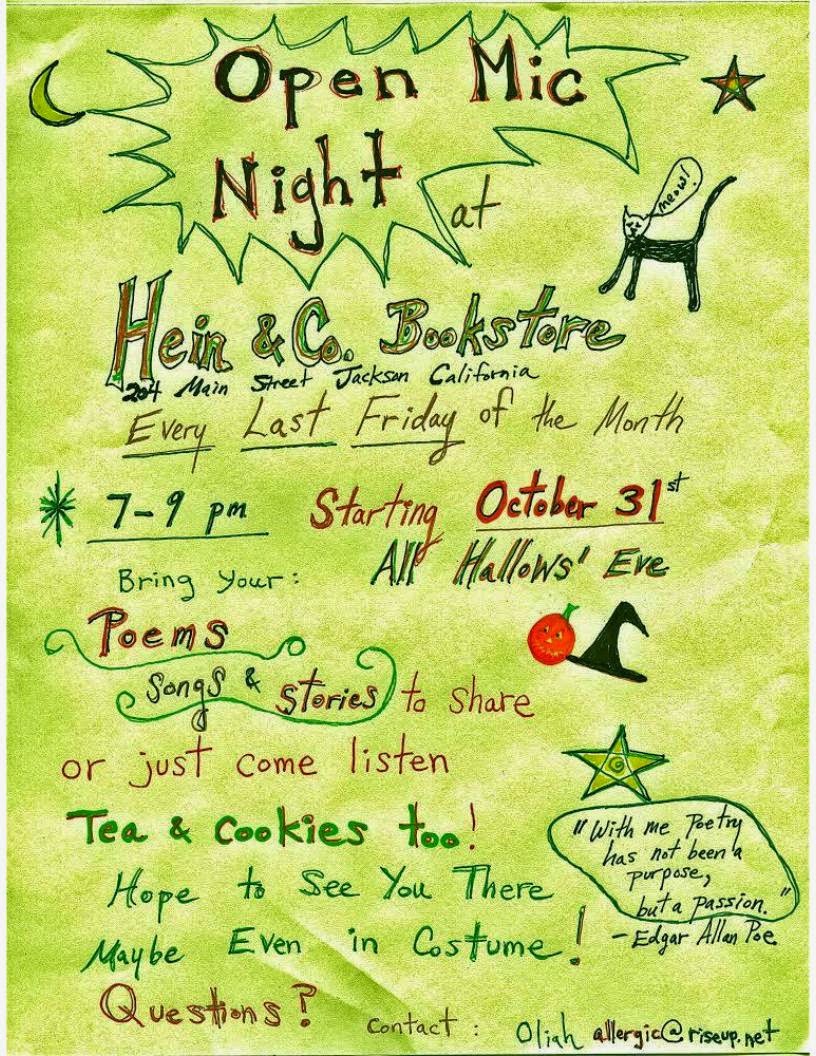 Open Mic
Night
at
meow!
Hein & Co. Bookstore
204 Main Street Jackson California
Every Last Friday of the Month
7-9 pm Starting October 31st
All Hallows' Eve
Bring Your:
Poems
Songs & Stories to share
or just come listen
Tea & Cookies too!
"With me Poetry
has not been a
purpose,
but a passion."
- Edgar Allan Poe
Hope to See You There
Maybe Even in Costume!
Questions?
Contact: Oliah allergic@riseup.net